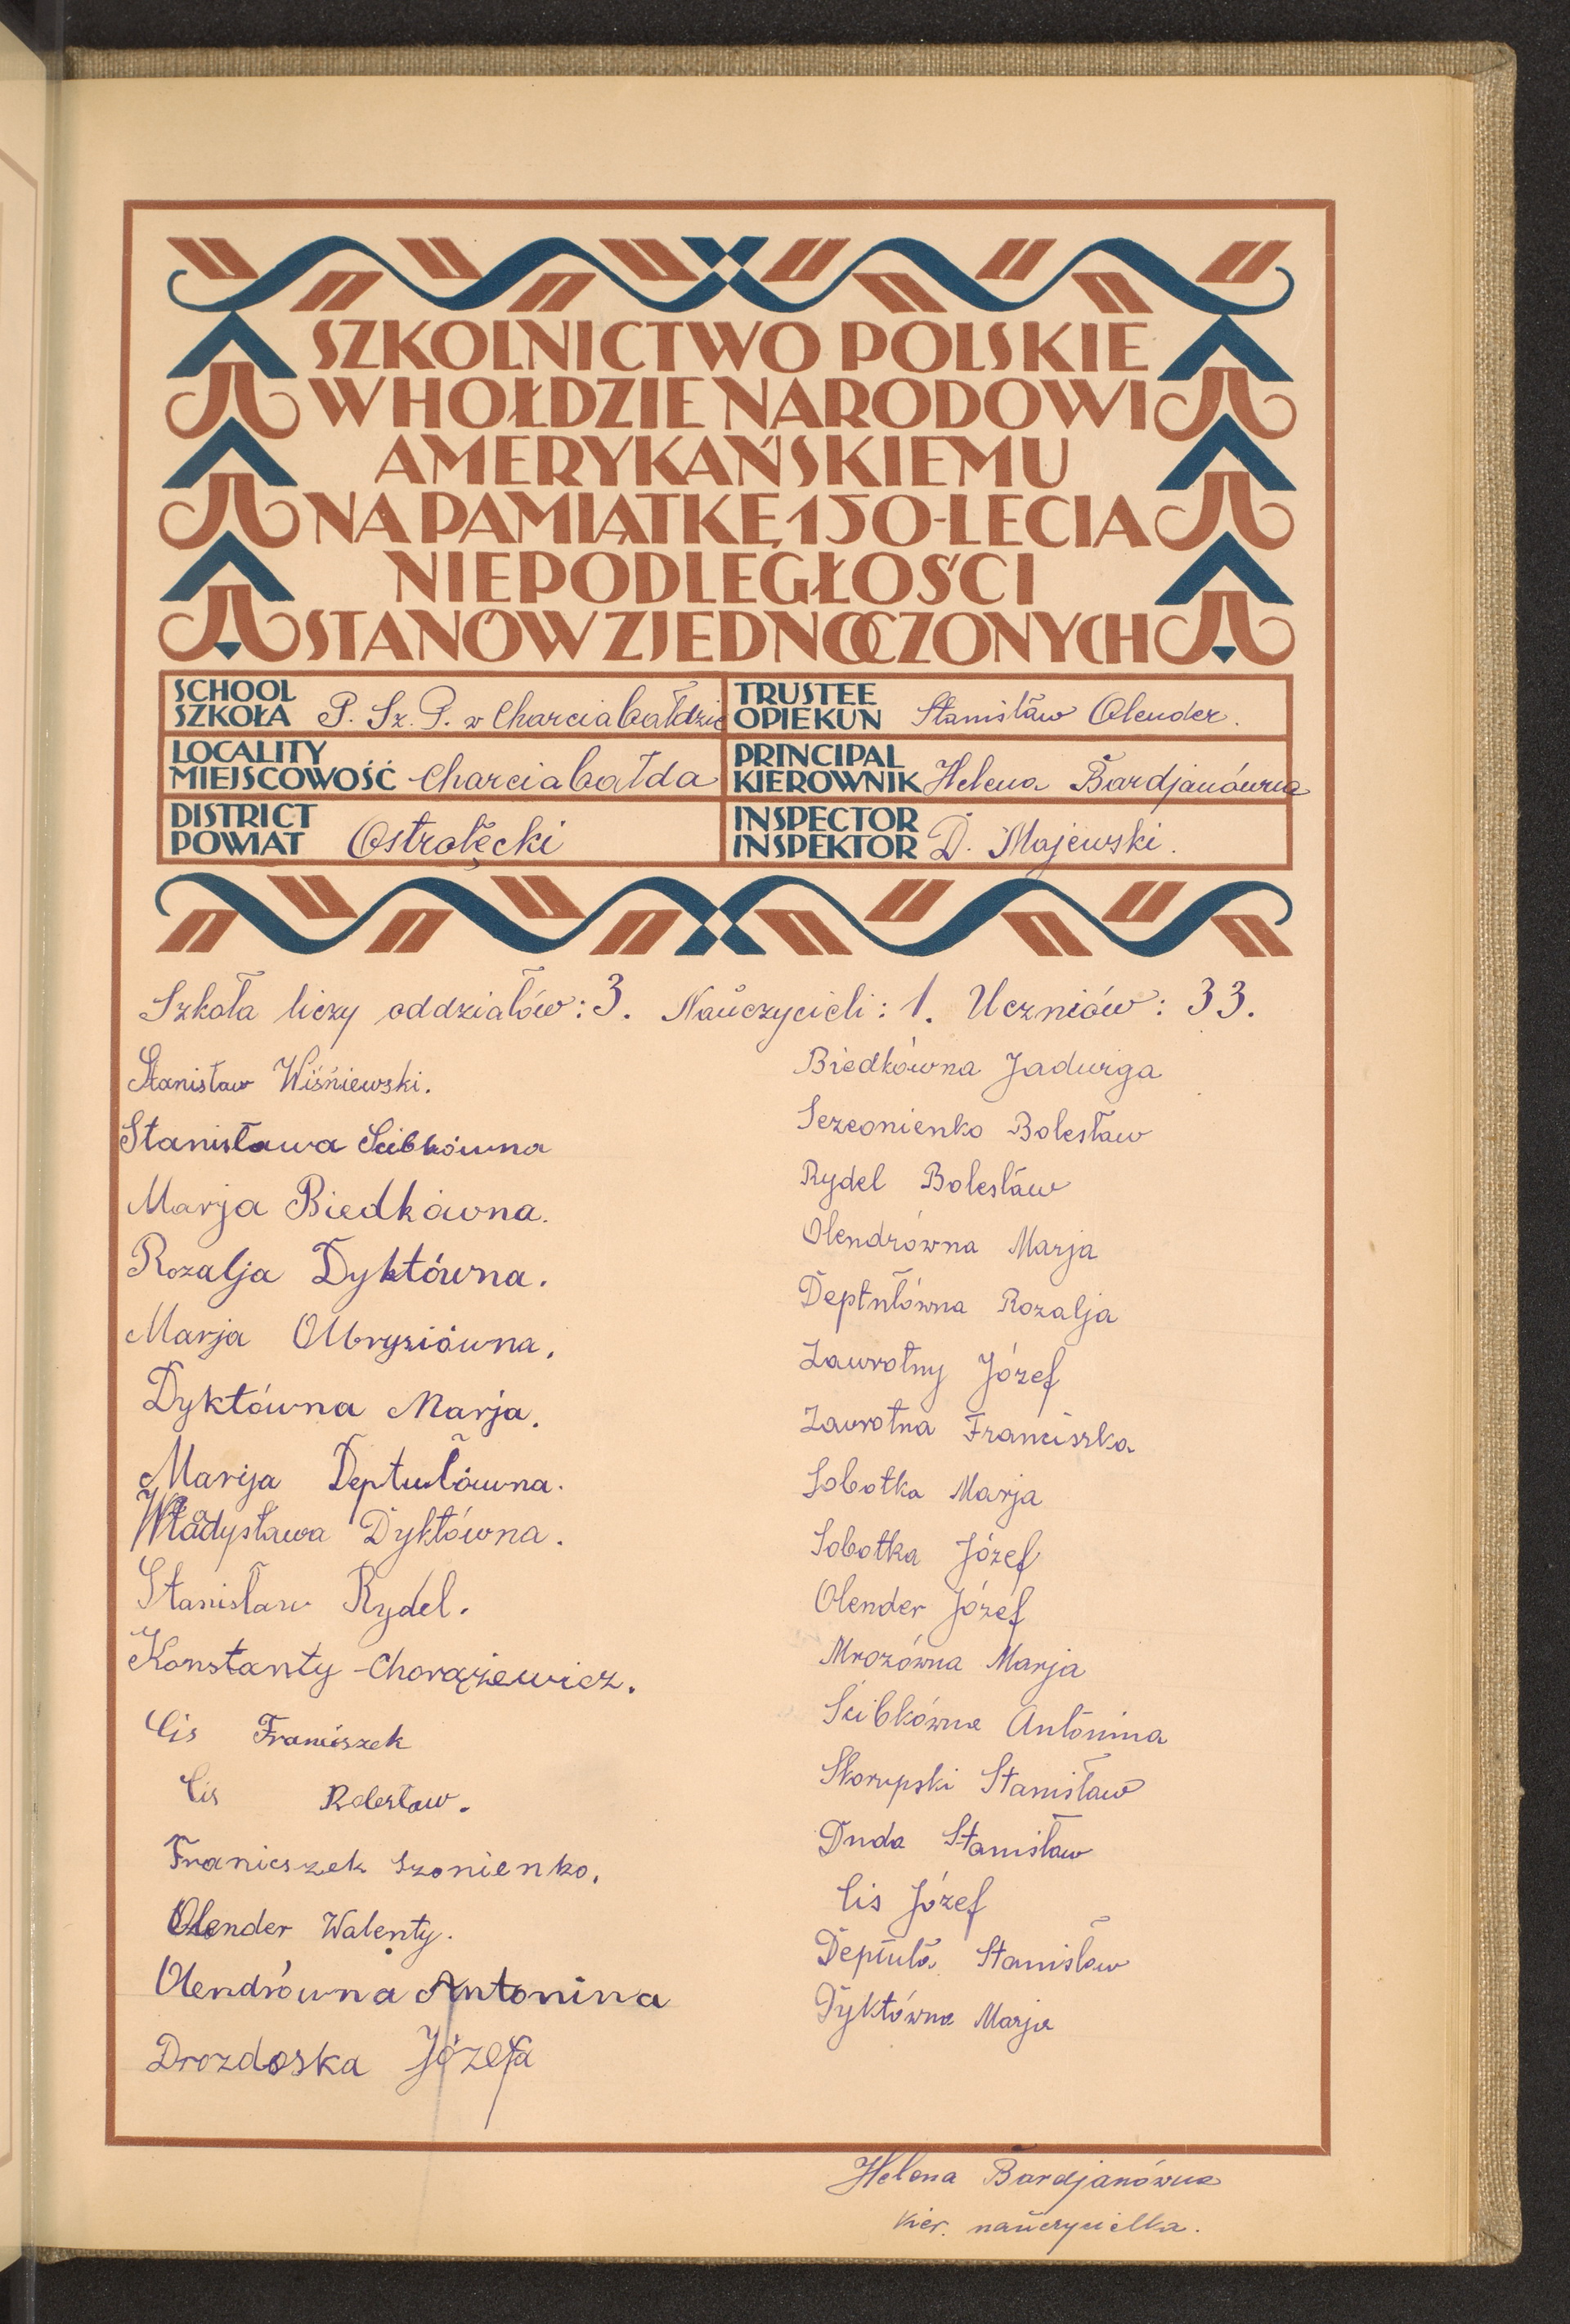 SZKOLNICTWO POLSKIE
W HOŁDZIE NARODOWI
AMERYKAŃSKIEMU
NA PAMIĄTKĘ 150-LECIA
NIEPODLEGŁOŚCI
STANÓW ZJEDNOCZONYCH
SCHOOL
SZKOŁA P. Sz. P. w Charciabałdzie
TRUSTEE
OPIEKUN Stanisław Olender.
LOCALITY
MIEJSCOWOŚĆ Charciabałda
PRINCIPAL
KIEROWNIK Helena Bardjanówna
DISTRICT
POWIAT Ostrołęcki
INSPECTOR
INSPEKTOR D. Majewski.
Szkoła liczy oddziałów: 3. Nauczycieli: 1. Uczniów: 33.
Stanisław Wiśniewski.
Stanisława Ścibkówna
Marja Biedkówna.
Rozalja Dyktówna.
Marja Olbrysiówna.
Dyktówna Marja.
Marija Deptułówna.
Władysława Dyktówna.
Stanisław Rydel.
Konstanty Chorążewicz.
Cis Franciszek
Cis Bolesław.
Franicszek Szonienko.
Olender Walenty.
Olendrówna Antonina
Drozdoska Józefa
Biedkówna Jadwiga
Bolesław
Rydel Bolesław
Olendrówna Marja
Deptułówna Rozalja
Zawrotny Józef
Zawrotna Franciszka
Sobotka Marja
Sobotka Józef
Olender Józef
Mrozówna Marja
Ścibkówna Antonina
Skorupski Stanisław
Duda Stanisław
Cis Józef
Deptuła Stanisław
Dyktówna Marja
Helena Bardjanówna
kier. nauczycielka.